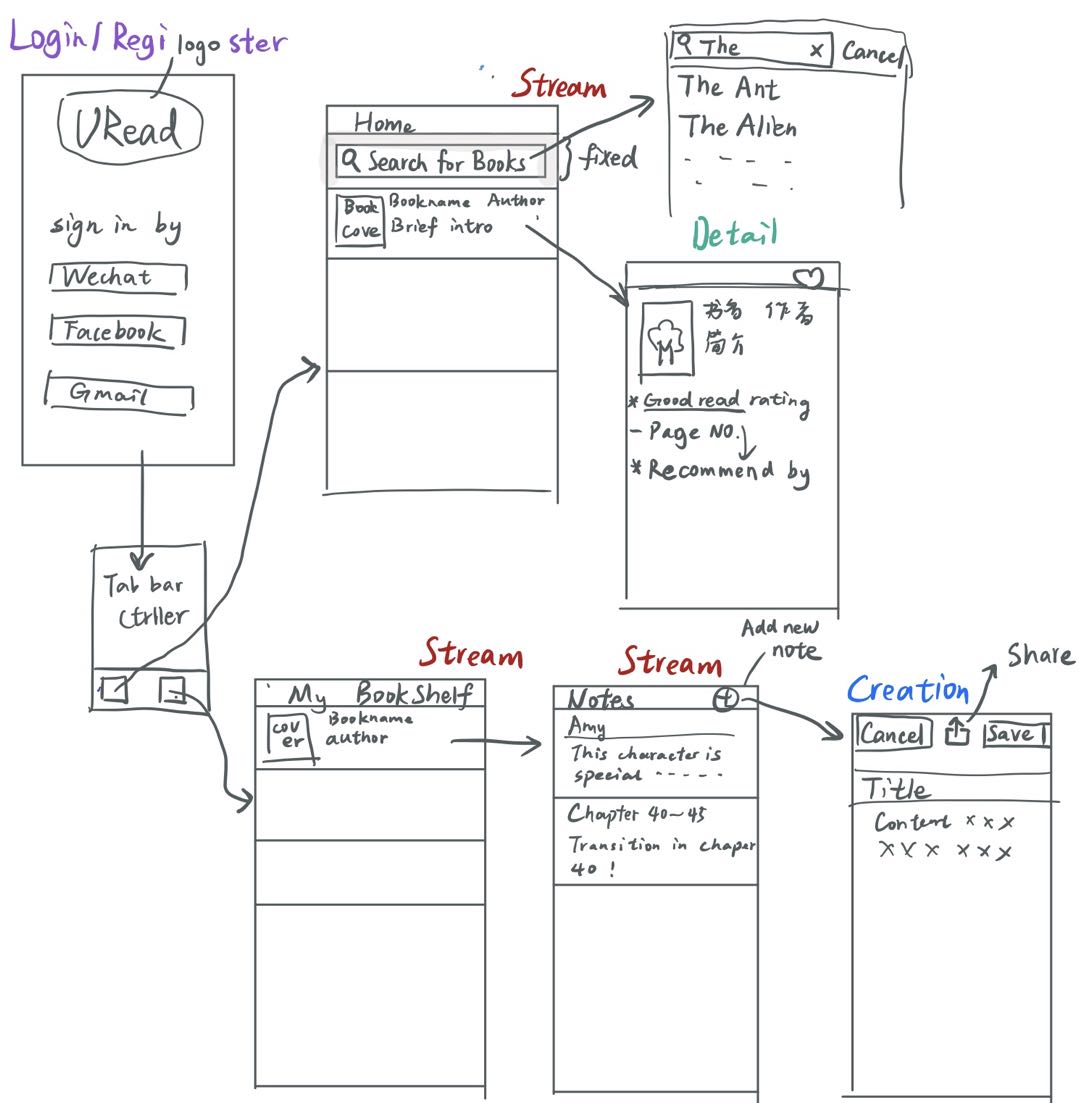 Login/Register
logo
VRead
sign in by
Wechat
Facebook
Gmail
Tab bar
Ctrller
Stream
Home
Search for Books
fixed
Book
Cove
Bookname Author
Brief intro
The x Cancel
The Ant
The Alien
Detail
书名 作者
简介
* Good read rating
- Page NO.
* Recommend by
Stream
My BookShelf
cov
er
Bookname
author
Stream
Add new
note
Notes +
Amy
This character is
special - - - - -
Chapter 40~45
Transition in chaper
40 !
Creation
Share
Cancel Save
Title
Content x x x
x x x x x x